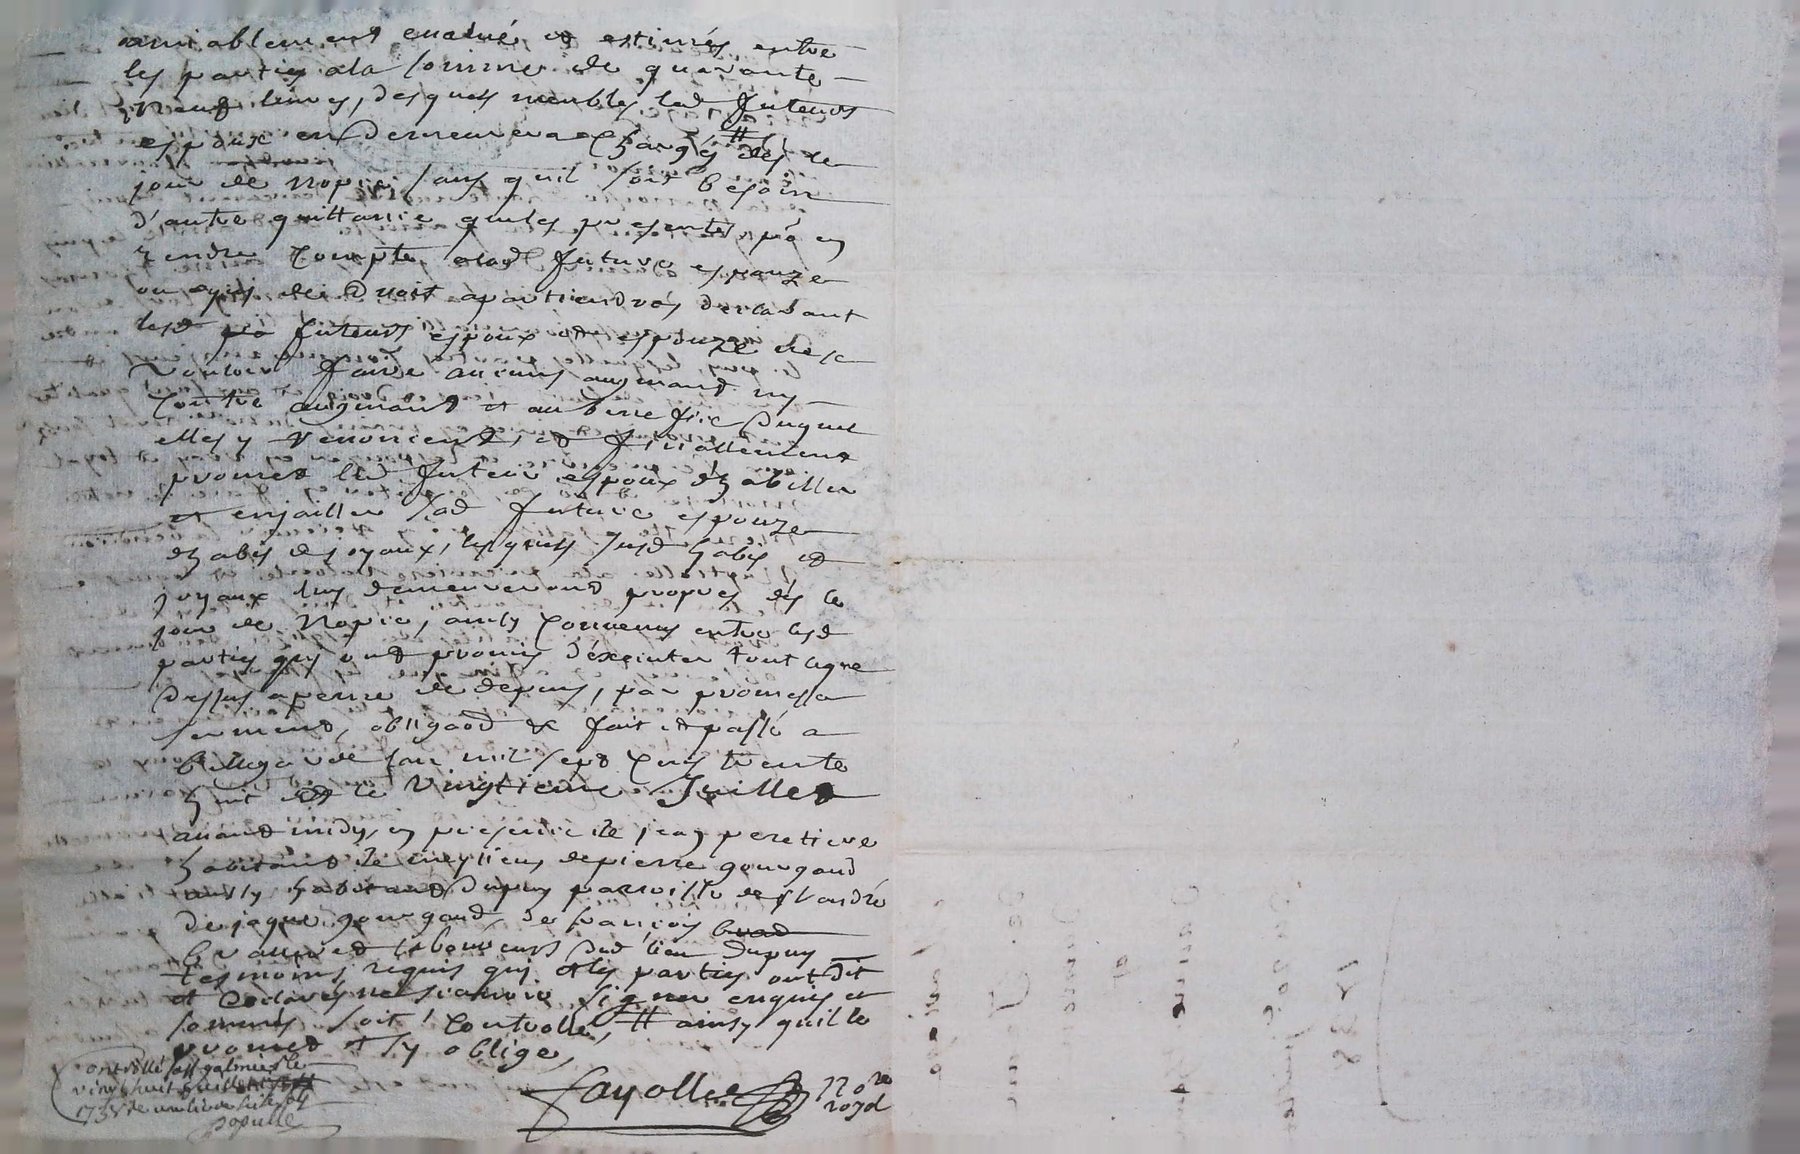 amiablement evalué et estimés entre
les parties a la somme de quarante
neuf livres, desquels meubles led futeurs
espoux en demeurera chargés # des le
jour de nopce sans quil soit besoin
d'autre quittance que les presentes, pō en
rendre compte a lad future espouze
ou a qui de droit apartiendrās declarant
lesd futeurs espoux et espouze ne se
vouloir faire aucuns augmand ny
contre augmand et au benefice duquel
elles y renoncent, et finallement
promet led futeur espoux d'habiller
et enjailler sad future espouze
d'habis des joyaux, lesquels susd habis et
joyaux luy demeureront propres dés le
jour de nopce, ainsy convenus entre lesd
parties qui ont promis d'éxecuter tout ce que
dessus a peine de depens, par promesse
serment, obligaōd & fait et passé a
bellegarde lan mil sept cens trente
huit et le vingtieme Juillet
avand midy, en presence de jean peretiere
habitand de meylieu de pierre gourgaud
aussy habitand dupuy parroisse de st andré
de jaque gourgaud, de francois
laboureurs dud lieu dupuy
tesmoins requis qui et les parties ont dit
et declarés ne scavoir signer enquis et
sommés soit controllé, # ainsy quil le
promet et sy oblige,
Fayolle nore
royal
controllé a st galmier le
vingt huit juillet
1738